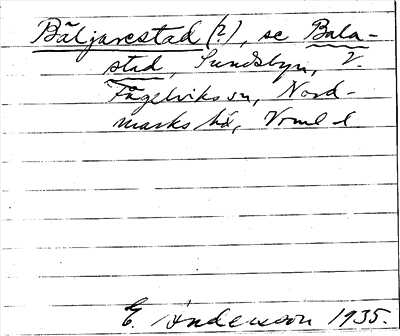 Bäljarestad (?), se Bala-
stad, Sundsbyn, V.
Fågelviks sn, Nord-
marks hd, Vrml l
E. Andersson 1935.